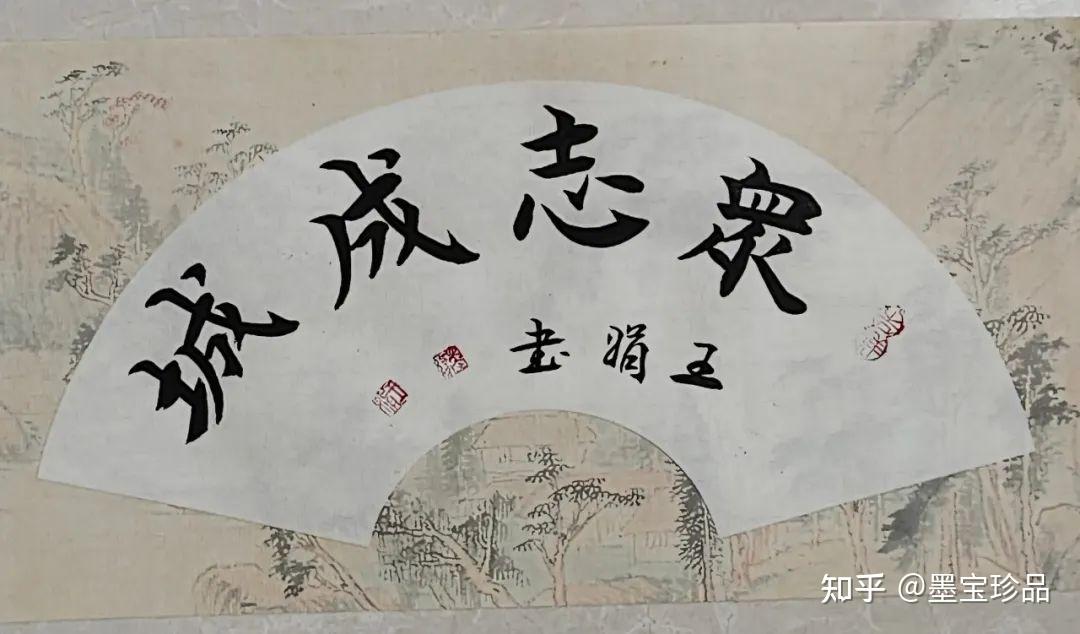 眾志成城
王娟書
知乎 @墨宝珍品